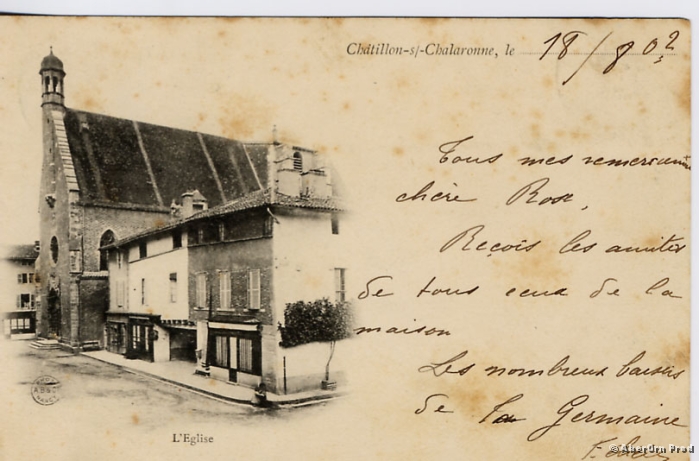 Châtillon-s/-Chalaronne, le 18/8 02
Tous mes remerciements
chère Rose,
Reçois les amitiés
de tous ceux de la
maison
Les nombreux baisers
de la Germaine
L'Eglise